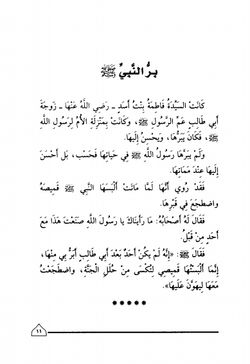 بِرُّ النَّبِيِّ ﷺ
كَانَتْ السَّيِّدَةُ فَاطِمَةُ بِنْتُ أَسَدٍ ـ رَضِيَ اللَّهُ عَنْهَا ـ زَوْجَةَ
أَبِي طَالِبٍ عَمِّ الرَّسُولِ ﷺ، وَكَانَتْ بِمَنْزِلَةِ الأُمِّ لِرَسُولِ اللَّهِ
ﷺ، فَكَانَ يَبَرُّهَا، وَيُحْسِنُ إِلَيْهَا.
وَلَمْ يَبَرَّهَا رَسُولُ اللَّهِ ﷺ فِي حَيَاتِهَا فَحَسْبُ، بَلْ أَحْسَنَ
إِلَيْهَا عِنْدَ مَمَاتِهَا.
فَقَدْ رُوِيَ أَنَّهَا لَمَّا مَاتَتْ أَلْبَسَهَا النَّبِي ﷺ قَمِيصَهُ
وَاضْطَجَعَ فِي قَبْرِهَا.
فَقَالَ لَهُ أَصْحَابُهُ: مَا رَأَيْنَاكَ يَا رَسُولَ اللَّهِ صَنَعْتَ هَذَا مَعَ
أَحَدٍ مِنْ قَبْلُ.
فَقَالَ ﷺ: «إِنَّهُ لَمْ يَكُنْ أَحَدٌ بَعْدَ أَبِي طَالِبٍ أَبَرَّ بِي مِنْهَا،
إِنَّمَا أَلْبَسْتُهَا قَمِيصِي لِتُكْسَى مِنْ حُلَلِ الْجَنَّةِ، وَاضْطَجَعْتُ
مَعَهَا لِيَهُونَ عَلَيْهَا».
١١